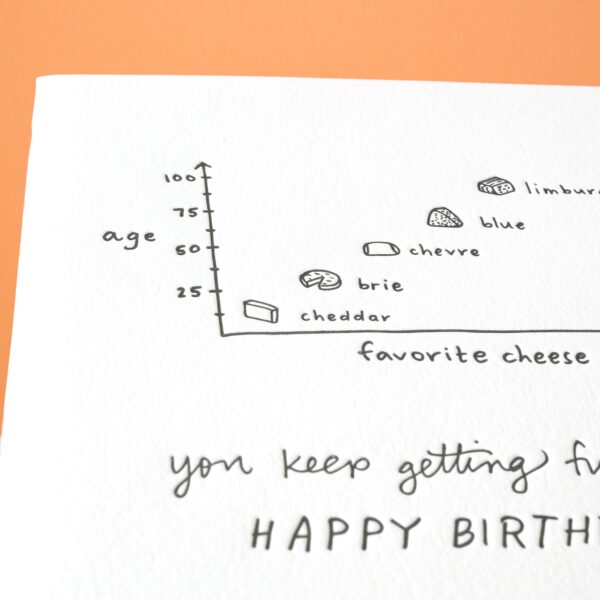 100
limbur
75
blue
age
50
chevre
25
brie
cheddar
favorite cheese
you keep getting fu
HAPPY BIRTH